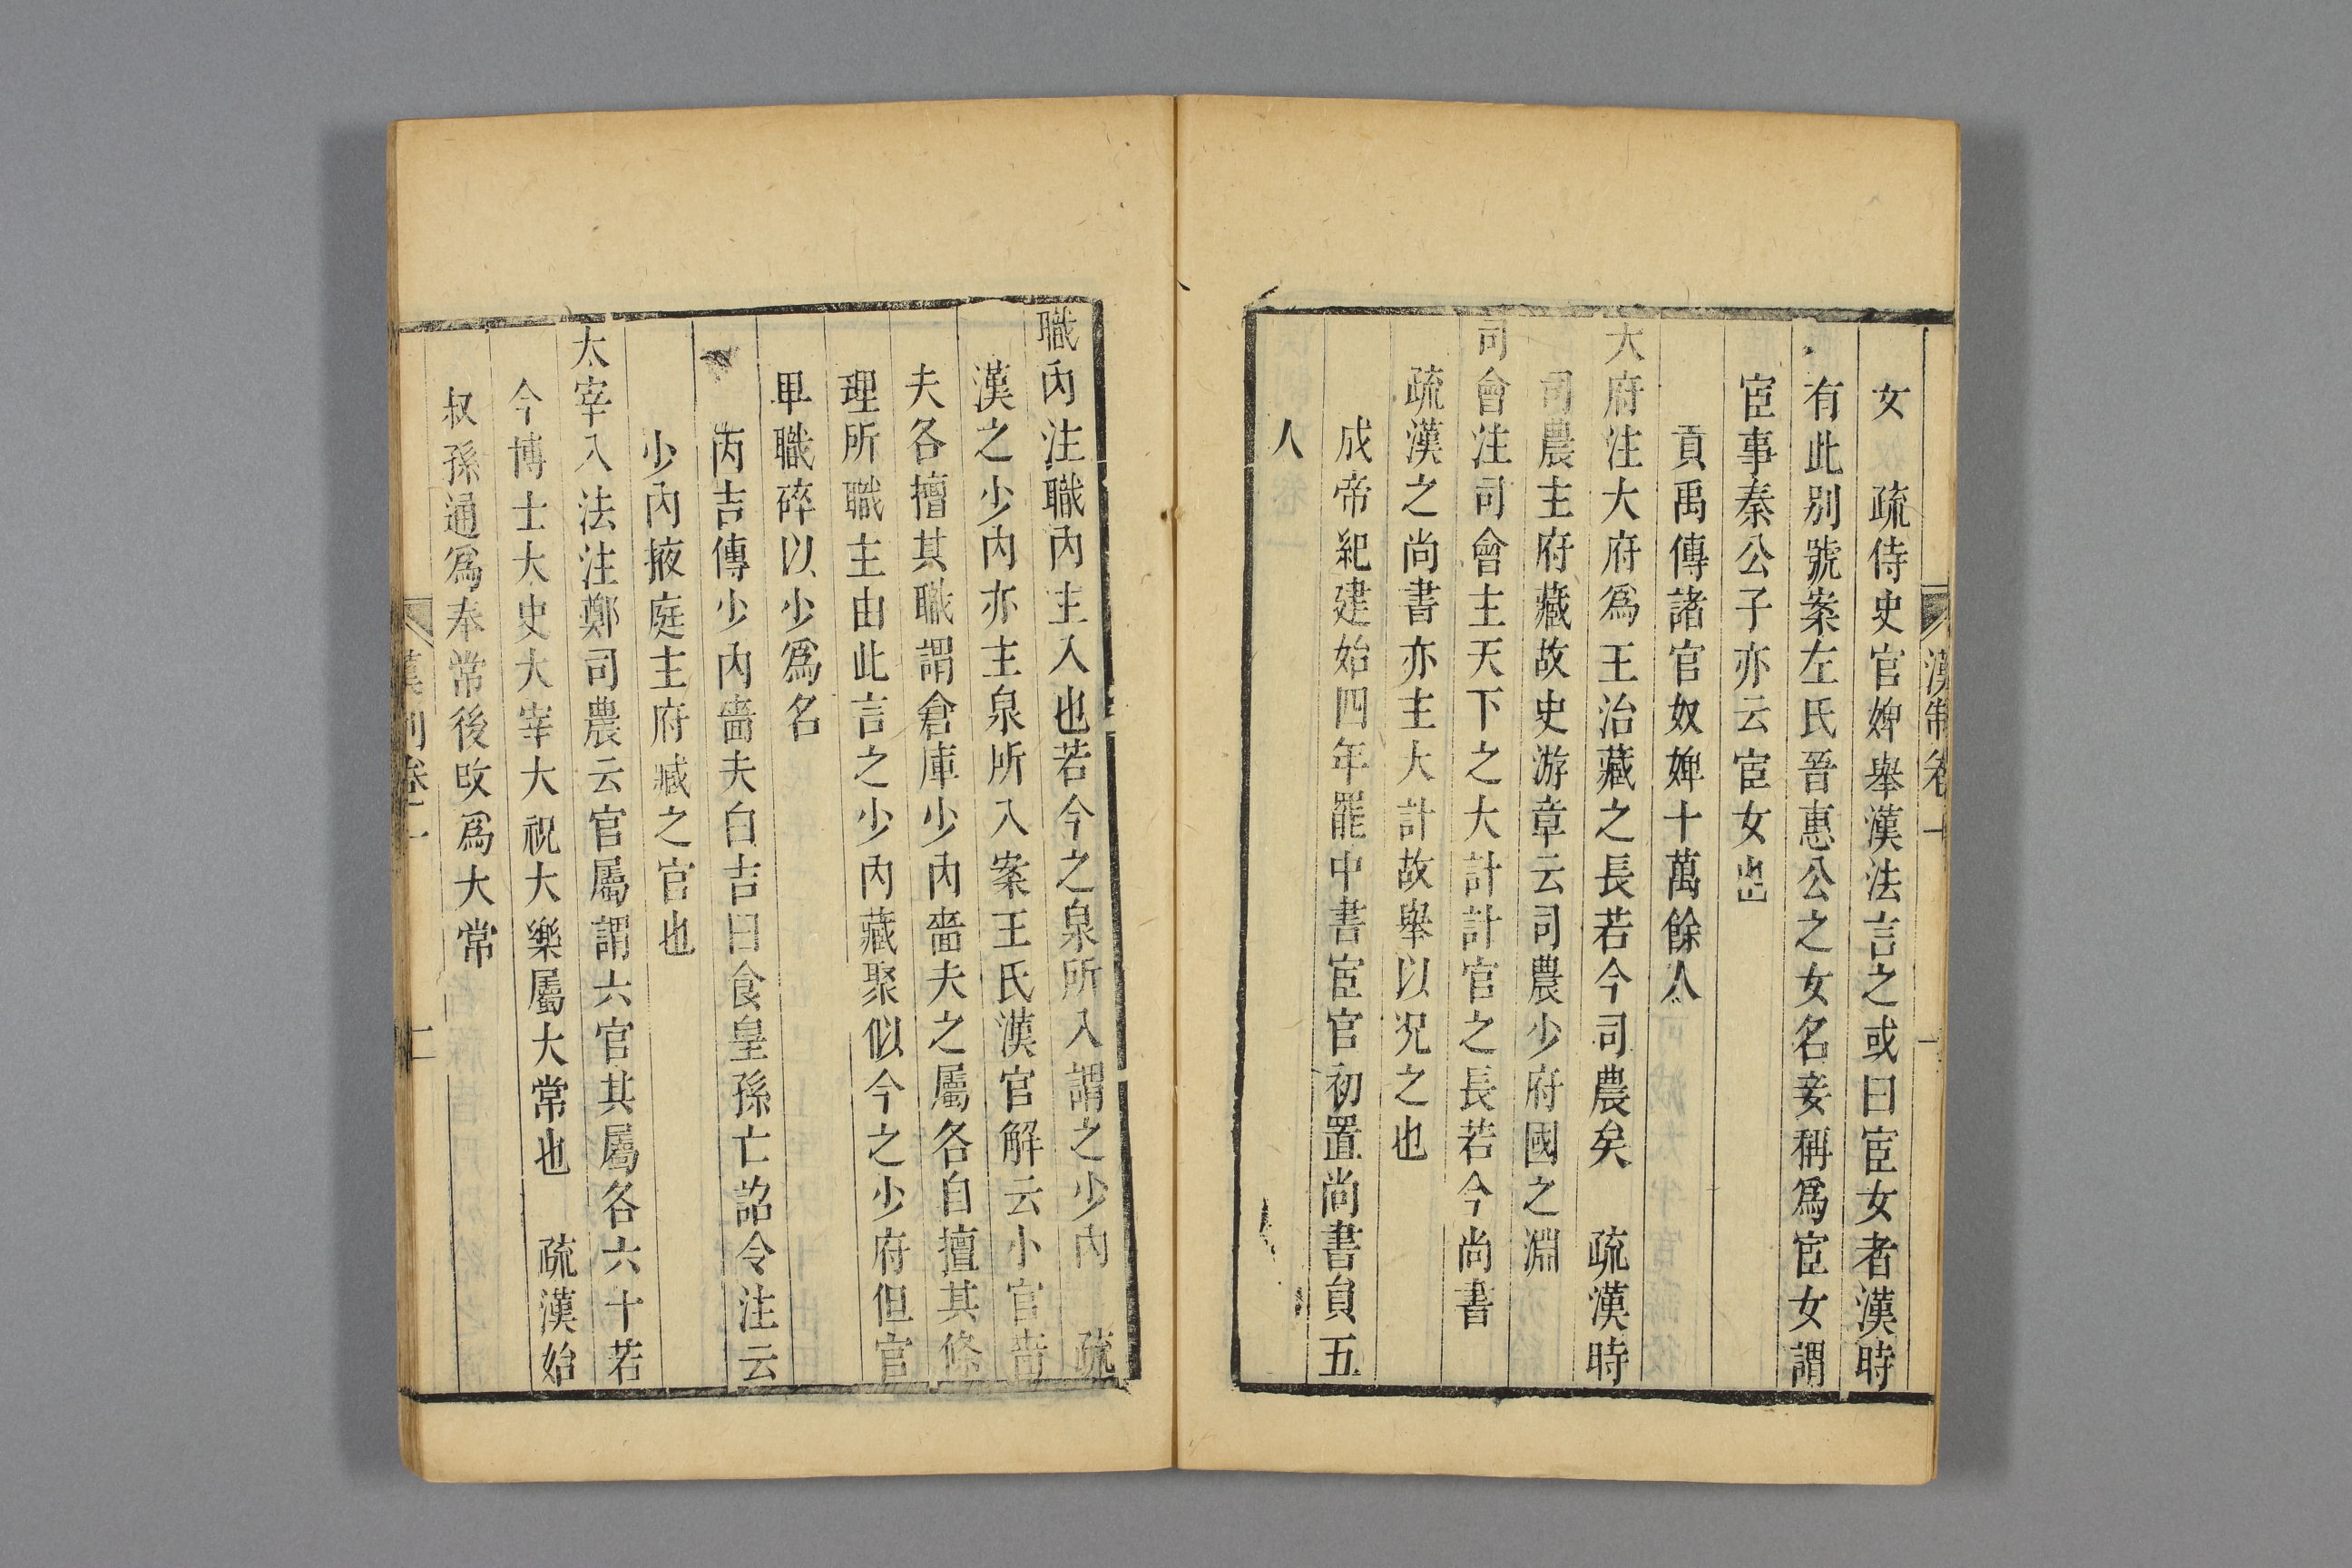 漢制卷一
女　疏侍史官婢舉漢法言之或曰宦女者漢時
有此别號案左氏晉惠公之女名妾稱爲宦女謂
宦事秦公子亦云宦女也
貢禹傳諸官奴婢十萬餘人
大府注大府爲王治藏之長若今司農矣　疏漢時
司農主府藏故史游章云司農少府國之淵
司會注司會主天下之大計計官之長若今尚書
疏漢之尚書亦主大計故舉以況之也
成帝紀建始四年罷中書宦官初置尚書員五
人
職內注職內主入也若今之泉所入謂之少內　疏
漢之少內亦主泉所入案王氏漢官解云小官嗇
夫各擅其職謂倉庫少內嗇夫之屬各自擅其條
理所職主由此言之少內藏聚似今之少府但官
𤰞職碎以少爲名
丙吉傳少內嗇夫白吉曰食皇孫亡詔令注云
少內掖庭主府臧之官也
太宰八法注鄭司農云官屬謂六官其屬各六十若
今博士大史大宰大祝大樂屬大常也　疏漢始
叔孫通爲奉常後攺爲大常